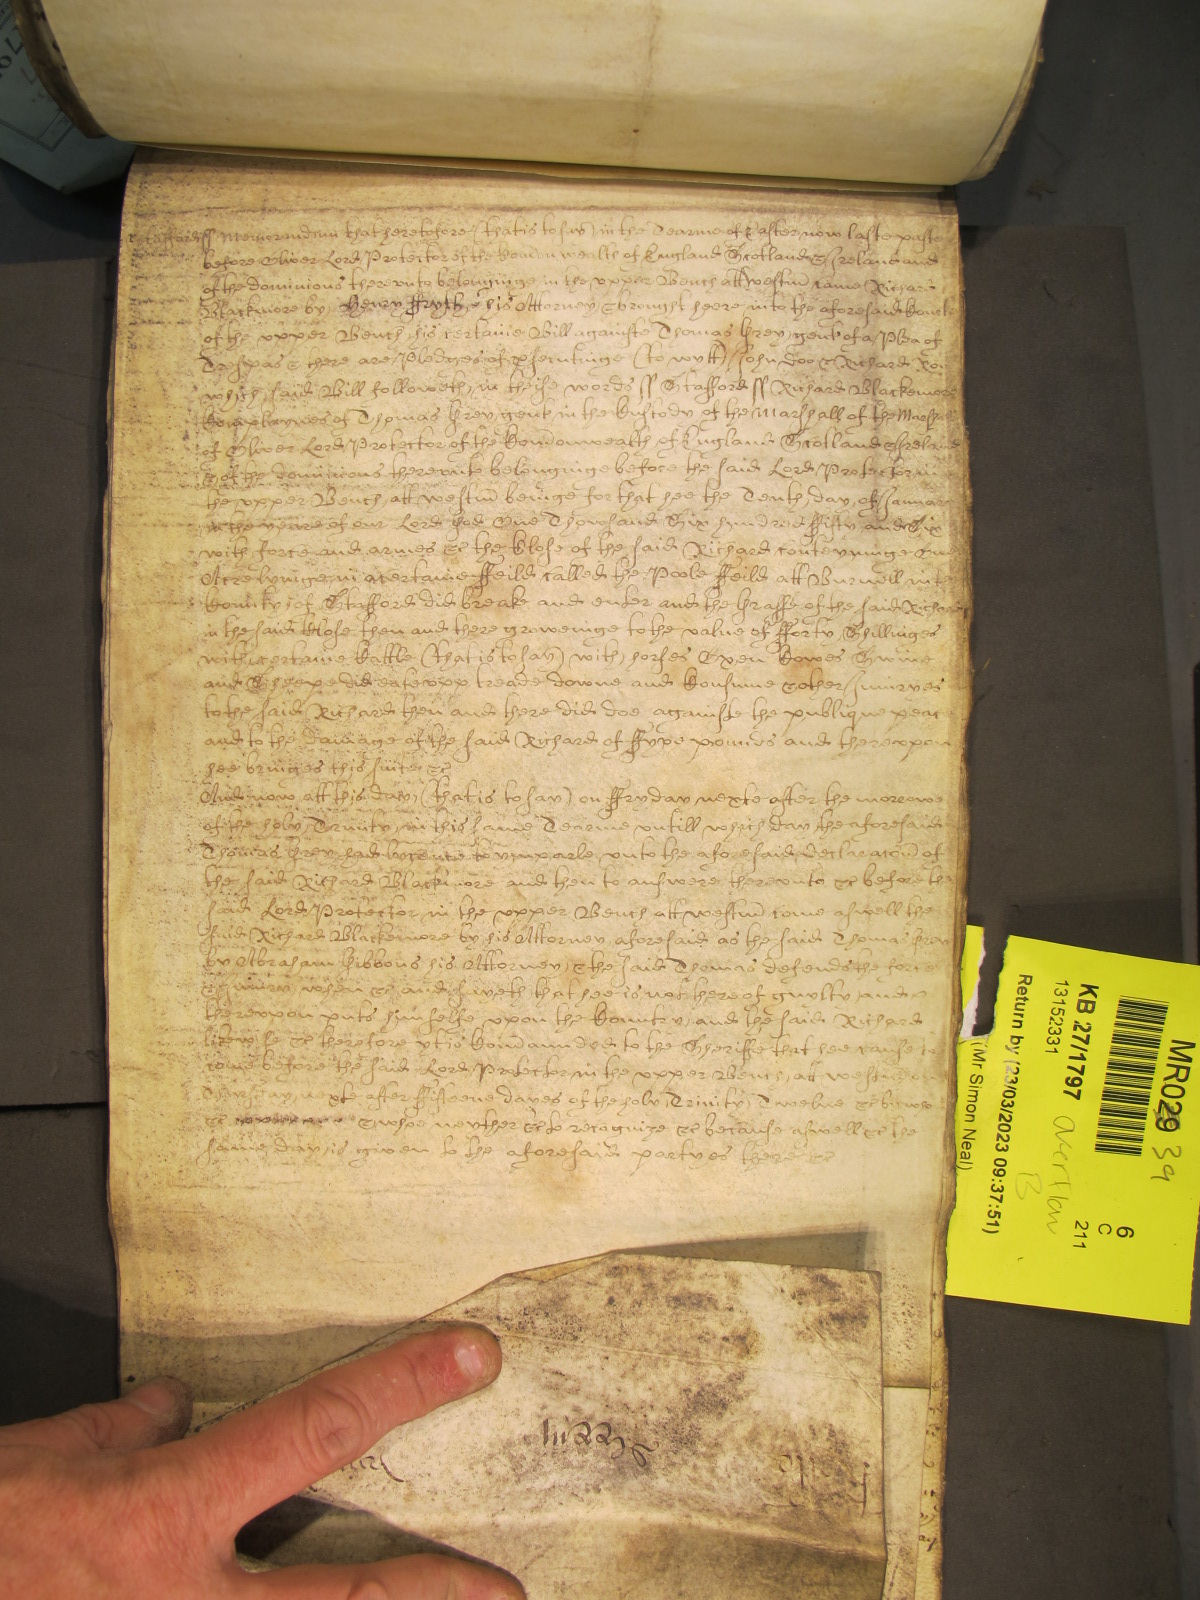 Stafford ss Memorandum that heretofore (that is to say) in the Tearme of Easter now laste paste
before Oliver Lord Protector of the Comon wealth of England Scotland & Ireland and
of the dominions thereunto belonginge in the upper Bench att westmr came Richard
Blackmore by Henry ffryth his Attorney & brought heere into the aforesaid Courte
of the upper Bench his certaine Bill againste Thomas Grey gent of a Plea of
Trespas & there are Pledges of prosecutinge (to wytt) John Doo & Richard Roo
which said Bill followeth in theise words ss Stafford ss Richard Blackemore
Complaynes of Thomas Grey gent in the Custody of the Marshall of the Marshal
of Oliver Lord Protector of the Comonwealth of England Scotland & Ireland
& of the dominions thereunto belonginge before the said Lord Protector in
the upper Bench att westmr beinge for that hee the Tenth day of January
in the yeare of our Lord God One Thowsand Six hundred ffifty and Six
with force and armes &c the Close of the said Richard conteyninge One
Acre lyinge in a certaine ffeild called the Poole ffeild att Burnell in the
County of Stafford did breake and enter and the Grasse of the said Richard
in the said Close then and there groweinge to the value of fforty Shillinges
with certaine Cattle (that is to say) with horses Oxen Cowes Swine
and Sheepe did eate upp treade downe and Consume & other Iniuryes
to the said Richard then and there did doe againste the publique peace
and to the damage of the said Richard of ffyve pounds and thereupon
hee bringes this suite &c
And now att this day (that is to say) on ffryday nexte after the morrowe
of the holy Trinity in this same Tearme untill which day the aforesaid
Thomas Grey had lycence to imparle unto the aforesaid declaracon of
the said Richard Blackmore and then to answere thereunto &c before the
said Lord Protector in the upper Bench att westmr come aswell the
said Richard Blackemore by his Attorney aforesaid as the said Thomas Grey
by Abraham Gibbons his Attorney & the said Thomas defends the force
& iniury when &c and sayeth that hee is not hereof guylty and
thereupon puts himselfe upon the Country and the said Richard
likewise &c therefore yt is Comaunded to the Sheriffe that hee cause to
come before the said Lord Protector in the upper Bench att westmr on
nexte after ffifteene dayes of the holy Trinity Twelve &c by whom
&c & whoe neyther &c to recognize &c because aswell &c the
same day is given to the aforesaid partyes there &c
MR029 39
6
C
211
KB 27/1797
overflow
B
13152331
Return by (23/03/2023 09:37:51)
(Mr Simon Neal)